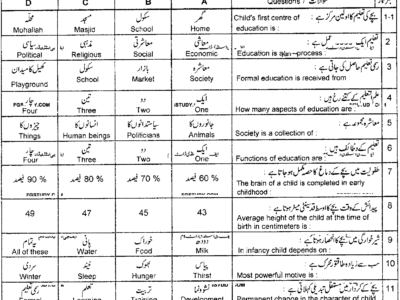 D C B A Questions / سوالات
محلہ مسجد سکول گھر بچے کی تعلیم کا اولین مرکز ہے: 1-1
Mohallah Masjid School Home Child's first centre of
education is :
سیاسی مذہبی معاشرتی معاشی 2
Political Religious Social Economic Education is a process
کھیل کا میدان سکول بازار معاشرہ رسمی تعلیم حاصل کی جاتی ہے: 3
Playground School Market Society Formal education is received from
چار تین دو ایک 4
Four Three Two One How many aspects of education are :
چیزوں کا انسانوں کا سیاستدانوں کا جانوروں کا معاشرہ مجموعہ ہے: 5
Things Human beings Politicians Animals Society is a collection of :
چار تین دو ایک تعلیم کے وظائف ہیں: 6
Four Three Two One Functions of education are :
90 % فیصد 80 % فیصد 70 % فیصد 60 % فیصد 7
The brain of a child is completed in early
childhood :
49 47 45 43 8
Average height of the child at the time of
birth in centimeters is :
یہ تمام پانی خوراک دودھ 9
All of these Water Food Milk In infancy child depends on :
سردی نیند بھوک پیاس سب سے زیادہ طاقتور محرک ہے: 10
Cold Sleep Hunger Thirst Most powerful motive is :
تعلیم نشوونما 11
Learning Training Development Permanent change in the character of child